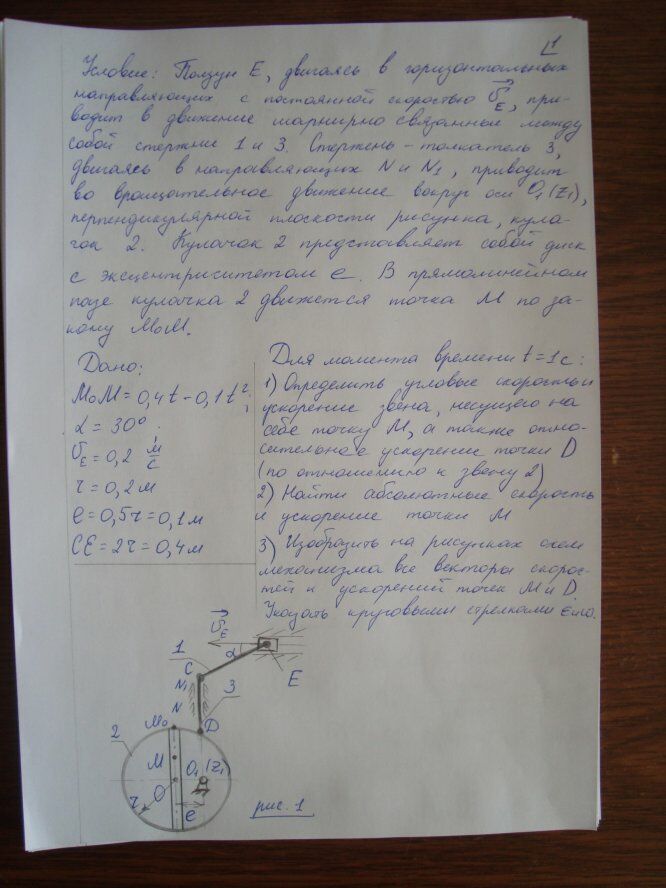 1
Условие: Ползун E, двигаясь в горизонтальных
направляющих с постоянной скоростью V_E, при-
водит в движение шарнирно связанные между
собой стержни 1 и 3. Стержень-толкатель 3,
двигаясь в направляющих N и N₁, приводит
во вращательное движение вокруг оси O₁(Z₁),
перпендикулярной плоскости рисунка, кула-
чок 2. Кулачок 2 представляет собой диск
с эксцентриситетом e. В прямолинейном
пазе кулачка 2 движется точка M по за-
кону M₀M.
Дано:
M₀M = 0,4t - 0,1t²;
α = 30°.
V_E = 0,2 м/с
r = 0,2 м
e = 0,5r = 0,1 м
CE = 2r = 0,4 м
Для момента времени t = 1 с:
1) Определить угловые скорость и
ускорение звена, несущего на
себе точку M, а также отно-
сительное ускорение точки D
(по отношению к звену 2)
2) Найти абсолютные скорость
и ускорение точки M
3) Изобразить на рисунках схем
механизма все векторы скорос-
тей и ускорений точек M и D.
Указать круговыми стрелками ε и ω.
V_E
1
α
C
E
N₁
3
N
M₀
D
2
M
O₁(Z₁)
O
r
e
рис. 1